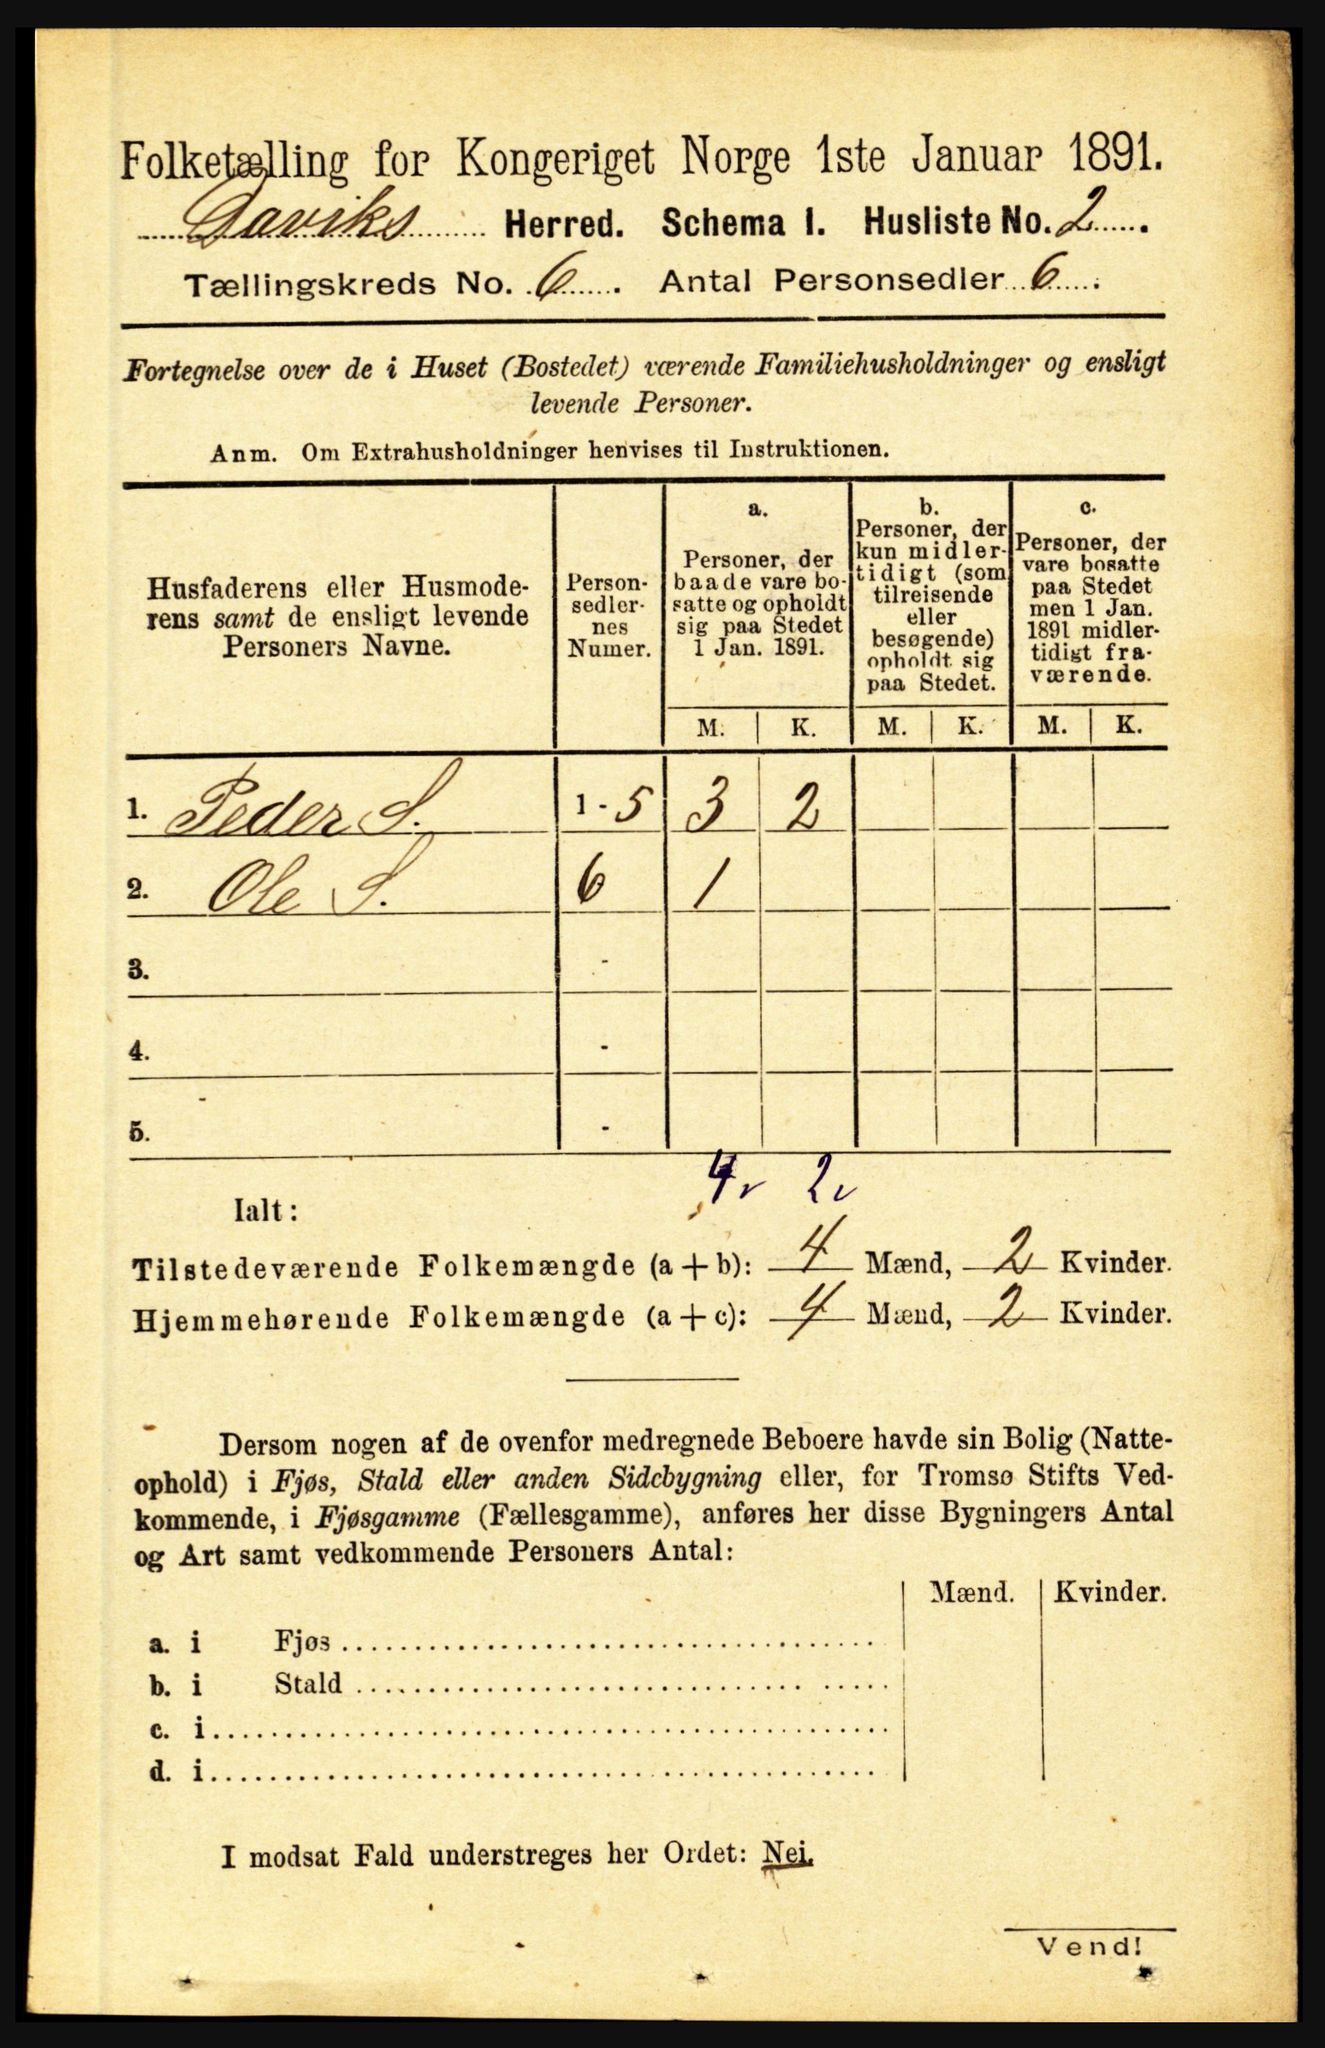 Folketælling for Kongeriget Norge 1ste Januar 1891.
Daviks Herred. Schema I. Husliste No. 2.
Tællingskreds No. 6. Antal Personsedler 6.
Fortegnelse over de i Huset (Bostedet) værende Familiehusholdninger og ensligt
levende Personer.
Anm. Om Extrahusholdninger henvises til Instruktionen.
Husfaderens eller Husmode-
rens samt de ensligt levende
Personers Navne.
Person-
sedler-
nes
Numer.
a.
Personer, der
baade vare bo-
satte og opholdt
sig paa Stedet
1 Jan. 1891.
b.
Personer, der
kun midler-
tidigt (som
tilreisende
eller
besøgende)
opholdt sig
paa Stedet.
c.
Personer, der
vare bosatte
paa Stedet
men 1 Jan.
1891 midler-
tidigt fra-
værende.
M. K. M. K. M. K.
1. Peder S. 1 - 5 3 2
2. Ole S. 6 1
3. -
4. -
5. -
4 2
Ialt:
Tilstedeværende Folkemængde (a + b): 4 Mænd, 2 Kvinder.
Hjemmehørende Folkemængde (a + c): 4 Mænd, 2 Kvinder.
Dersom nogen af de ovenfor medregnede Beboere havde sin Bolig (Natte-
ophold) i Fjøs, Stald eller anden Sidebygning eller, for Tromsø Stifts Ved-
kommende, i Fjøsgamme (Fællesgamme), anføres her disse Bygningers Antal
og Art samt vedkommende Personers Antal:
Mænd. Kvinder.
a. i Fjøs
b. i Stald
c. i
d. i
I modsat Fald understreges her Ordet: Nei.
Vend!